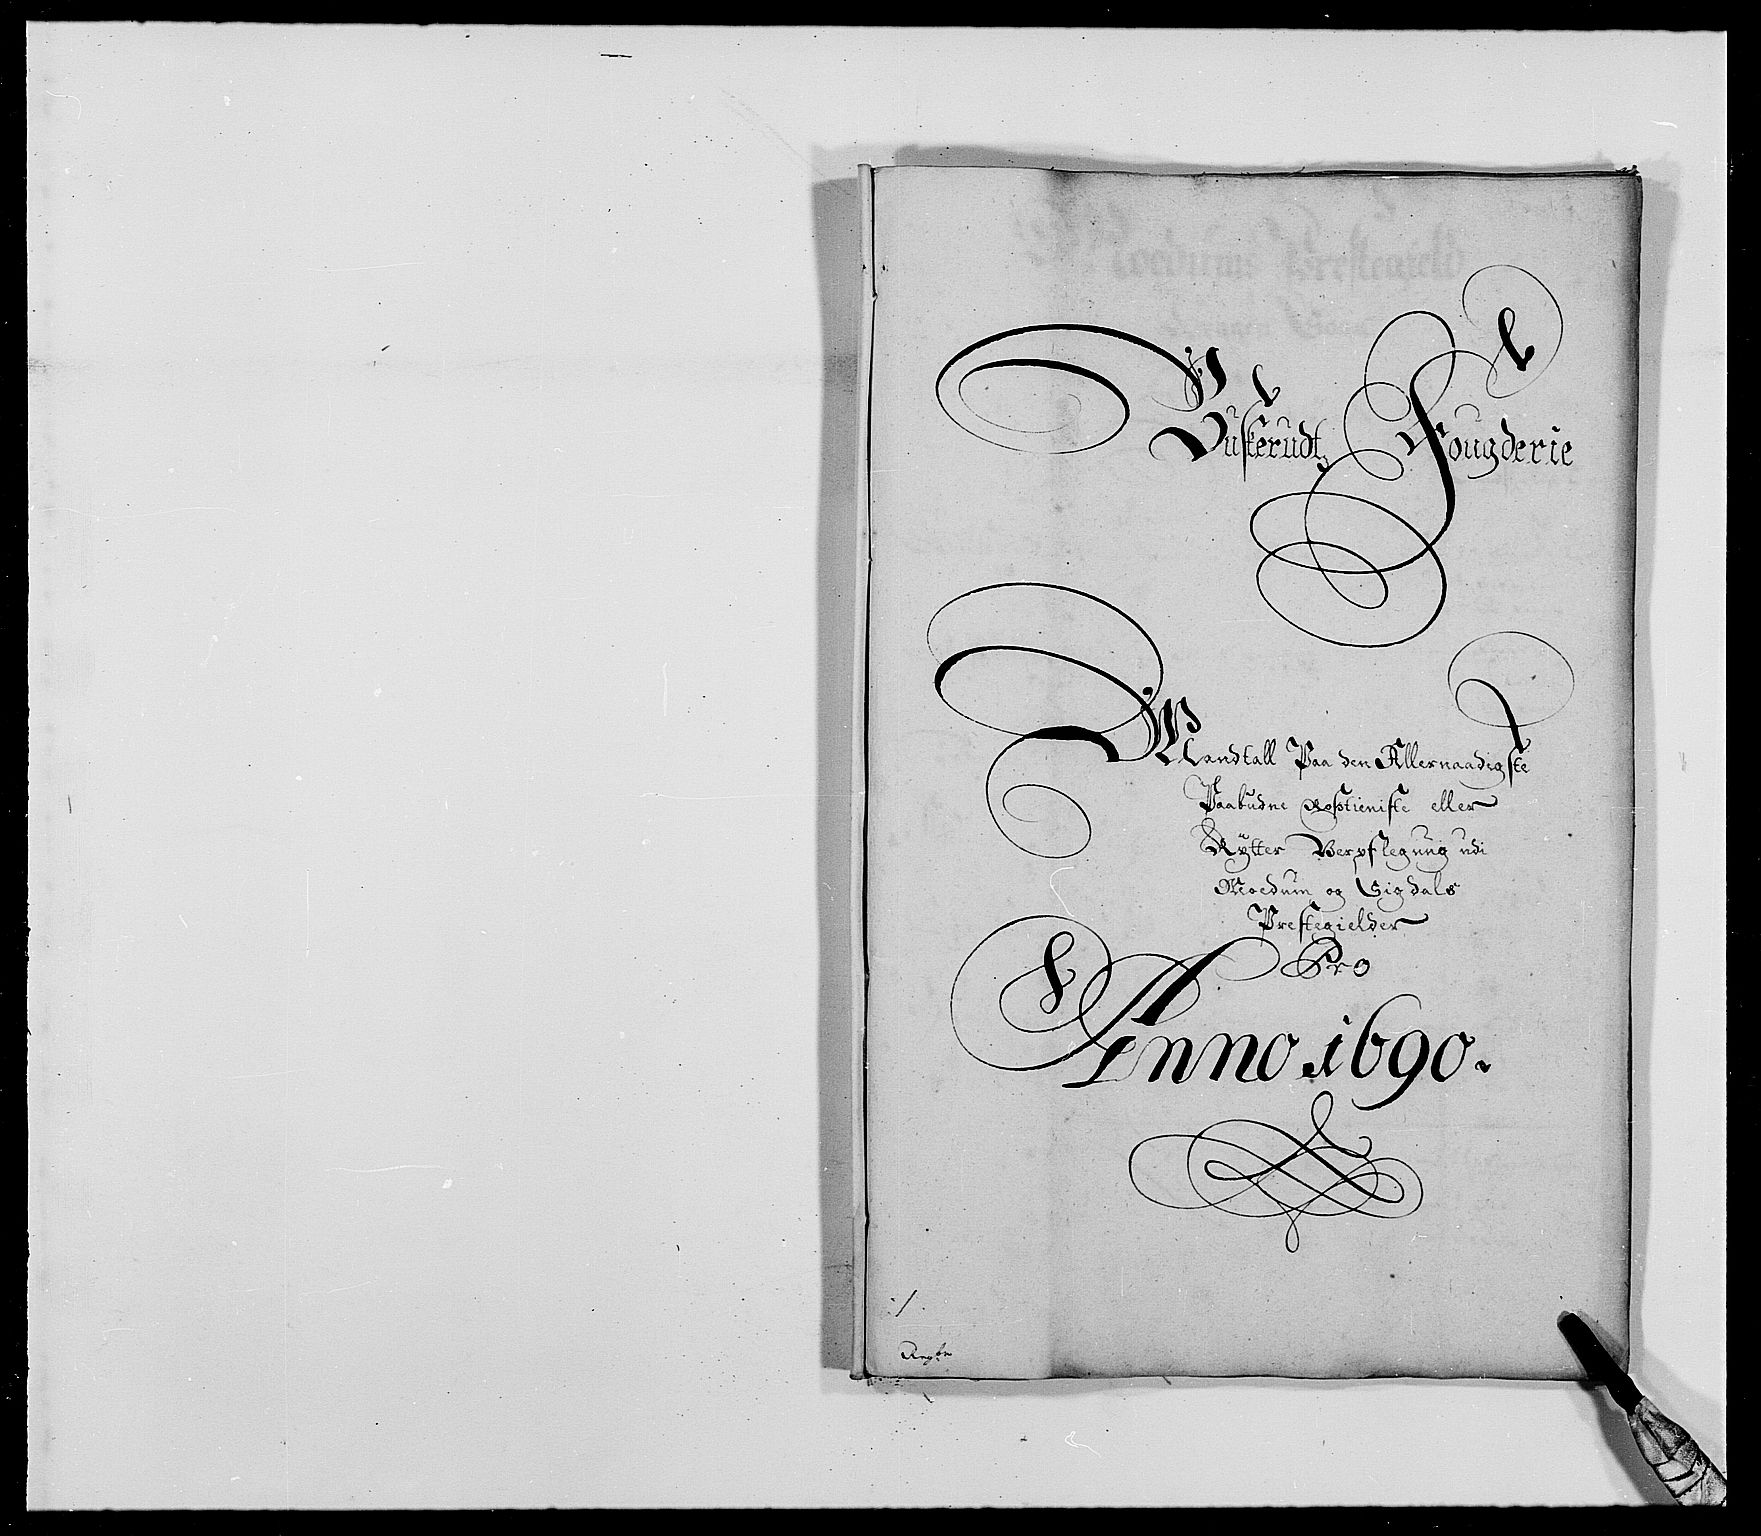 Buskerudtz Fougderie
Mandtall Paa den Allernaadigste
Paabudne Rostieniste eller
Rytter Verpflegung udi
Moedum og Sigdals
Prestegielder
Pro
Anno. 1690.